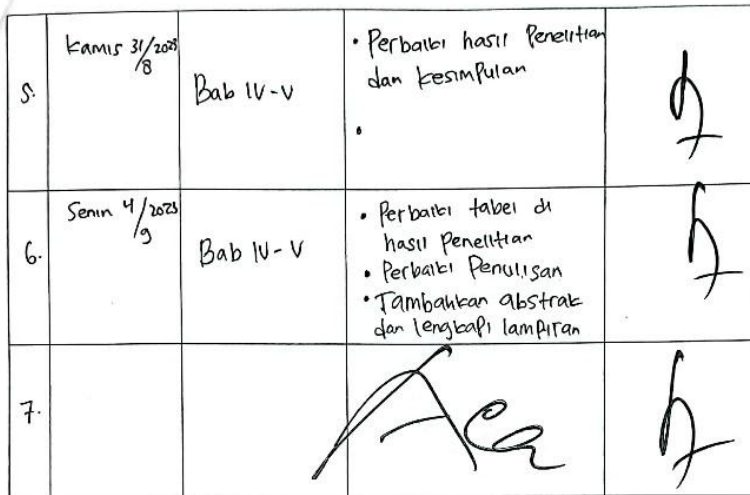 5.
Kamis 31/8 2023
Bab IV-V
• Perbaiki hasil Penelitian
dan kesimpulan
•
6.
Senin 4/9 2023
Bab IV-V
• Perbaiki tabel di
hasil Penelitian
• Perbaiki Penulisan
• Tambahkan abstrak
dan lengkapi lampiran
7.
Acc